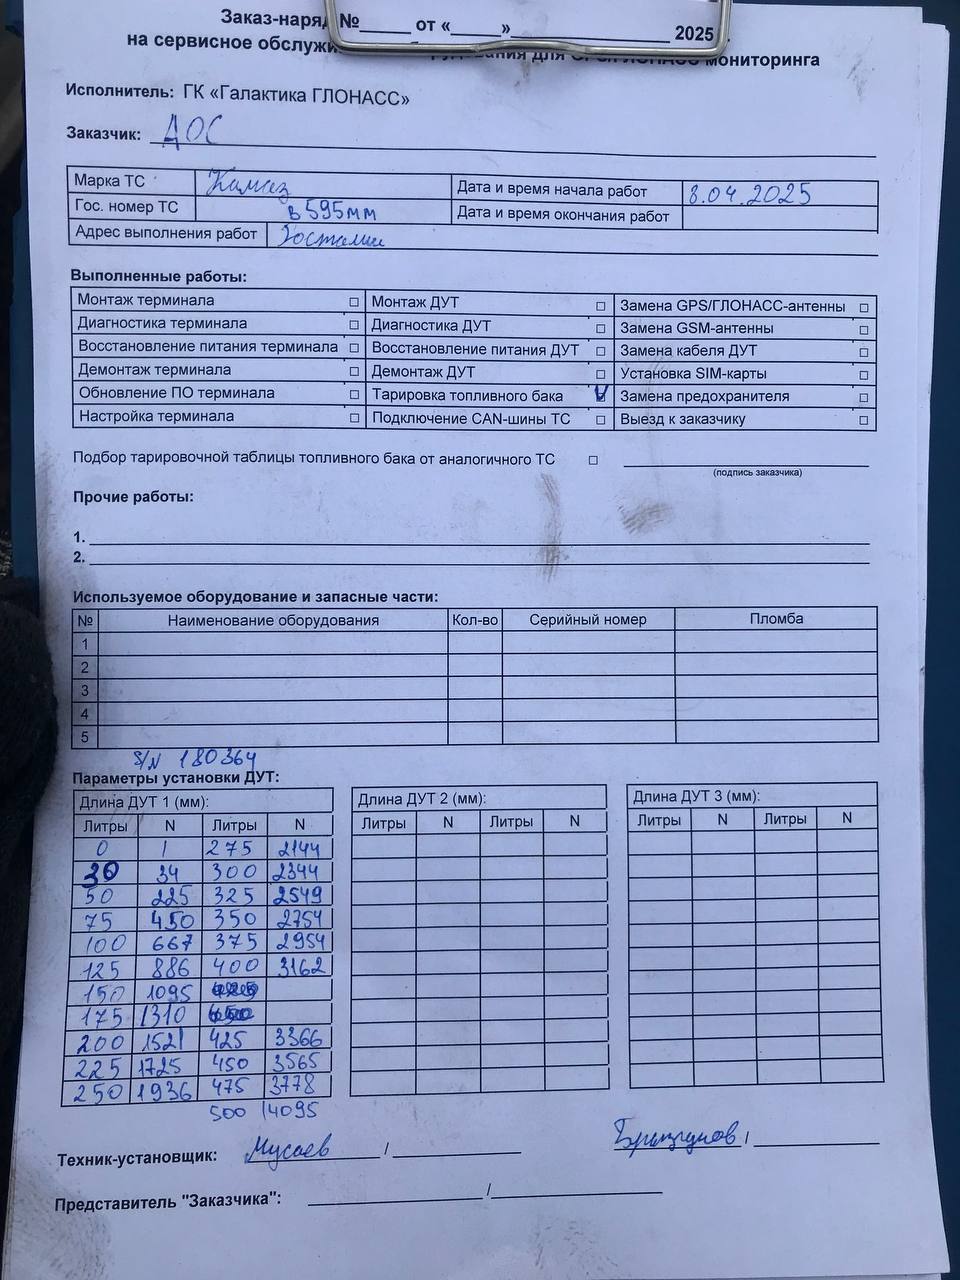 Заказ-наряд №_____ от «_____»________________ 2025
на сервисное обслужи мониторинга
Исполнитель: ГК «Галактика ГЛОНАСС»
Заказчик: ДОС
Марка ТС Камаз Дата и время начала работ 8.04.2025
Гос. номер ТС в595мм Дата и время окончания работ
Адрес выполнения работ
Выполненные работы:
Монтаж терминала □ Монтаж ДУТ □ Замена GPS/ГЛОНАСС-антенны □
Диагностика терминала □ Диагностика ДУТ □ Замена GSM-антенны □
Восстановление питания терминала □ Восстановление питания ДУТ □ Замена кабеля ДУТ □
Демонтаж терминала □ Демонтаж ДУТ □ Установка SIM-карты □
Обновление ПО терминала □ Тарировка топливного бака V Замена предохранителя □
Настройка терминала □ Подключение CAN-шины ТС □ Выезд к заказчику □
Подбор тарировочной таблицы топливного бака от аналогичного ТС □
(подпись заказчика)
Прочие работы:
1.
2.
Используемое оборудование и запасные части:
№ Наименование оборудования Кол-во Серийный номер Пломба
1
2
3
4
5
S/N 180364
Параметры установки ДУТ:
Длина ДУТ 1 (мм): Длина ДУТ 2 (мм): Длина ДУТ 3 (мм):
Литры N Литры N Литры N Литры N Литры N Литры N
0 1 275 2144
30 34 300 2344
50 225 325 2549
75 450 350 2754
100 667 375 2954
125 886 400 3162
150 1095
175 1310
200 1521 425 3366
225 1725 450 3565
250 1936 475 3778
500 4095
Техник-установщик: Мусаев /
Представитель "Заказчика": /